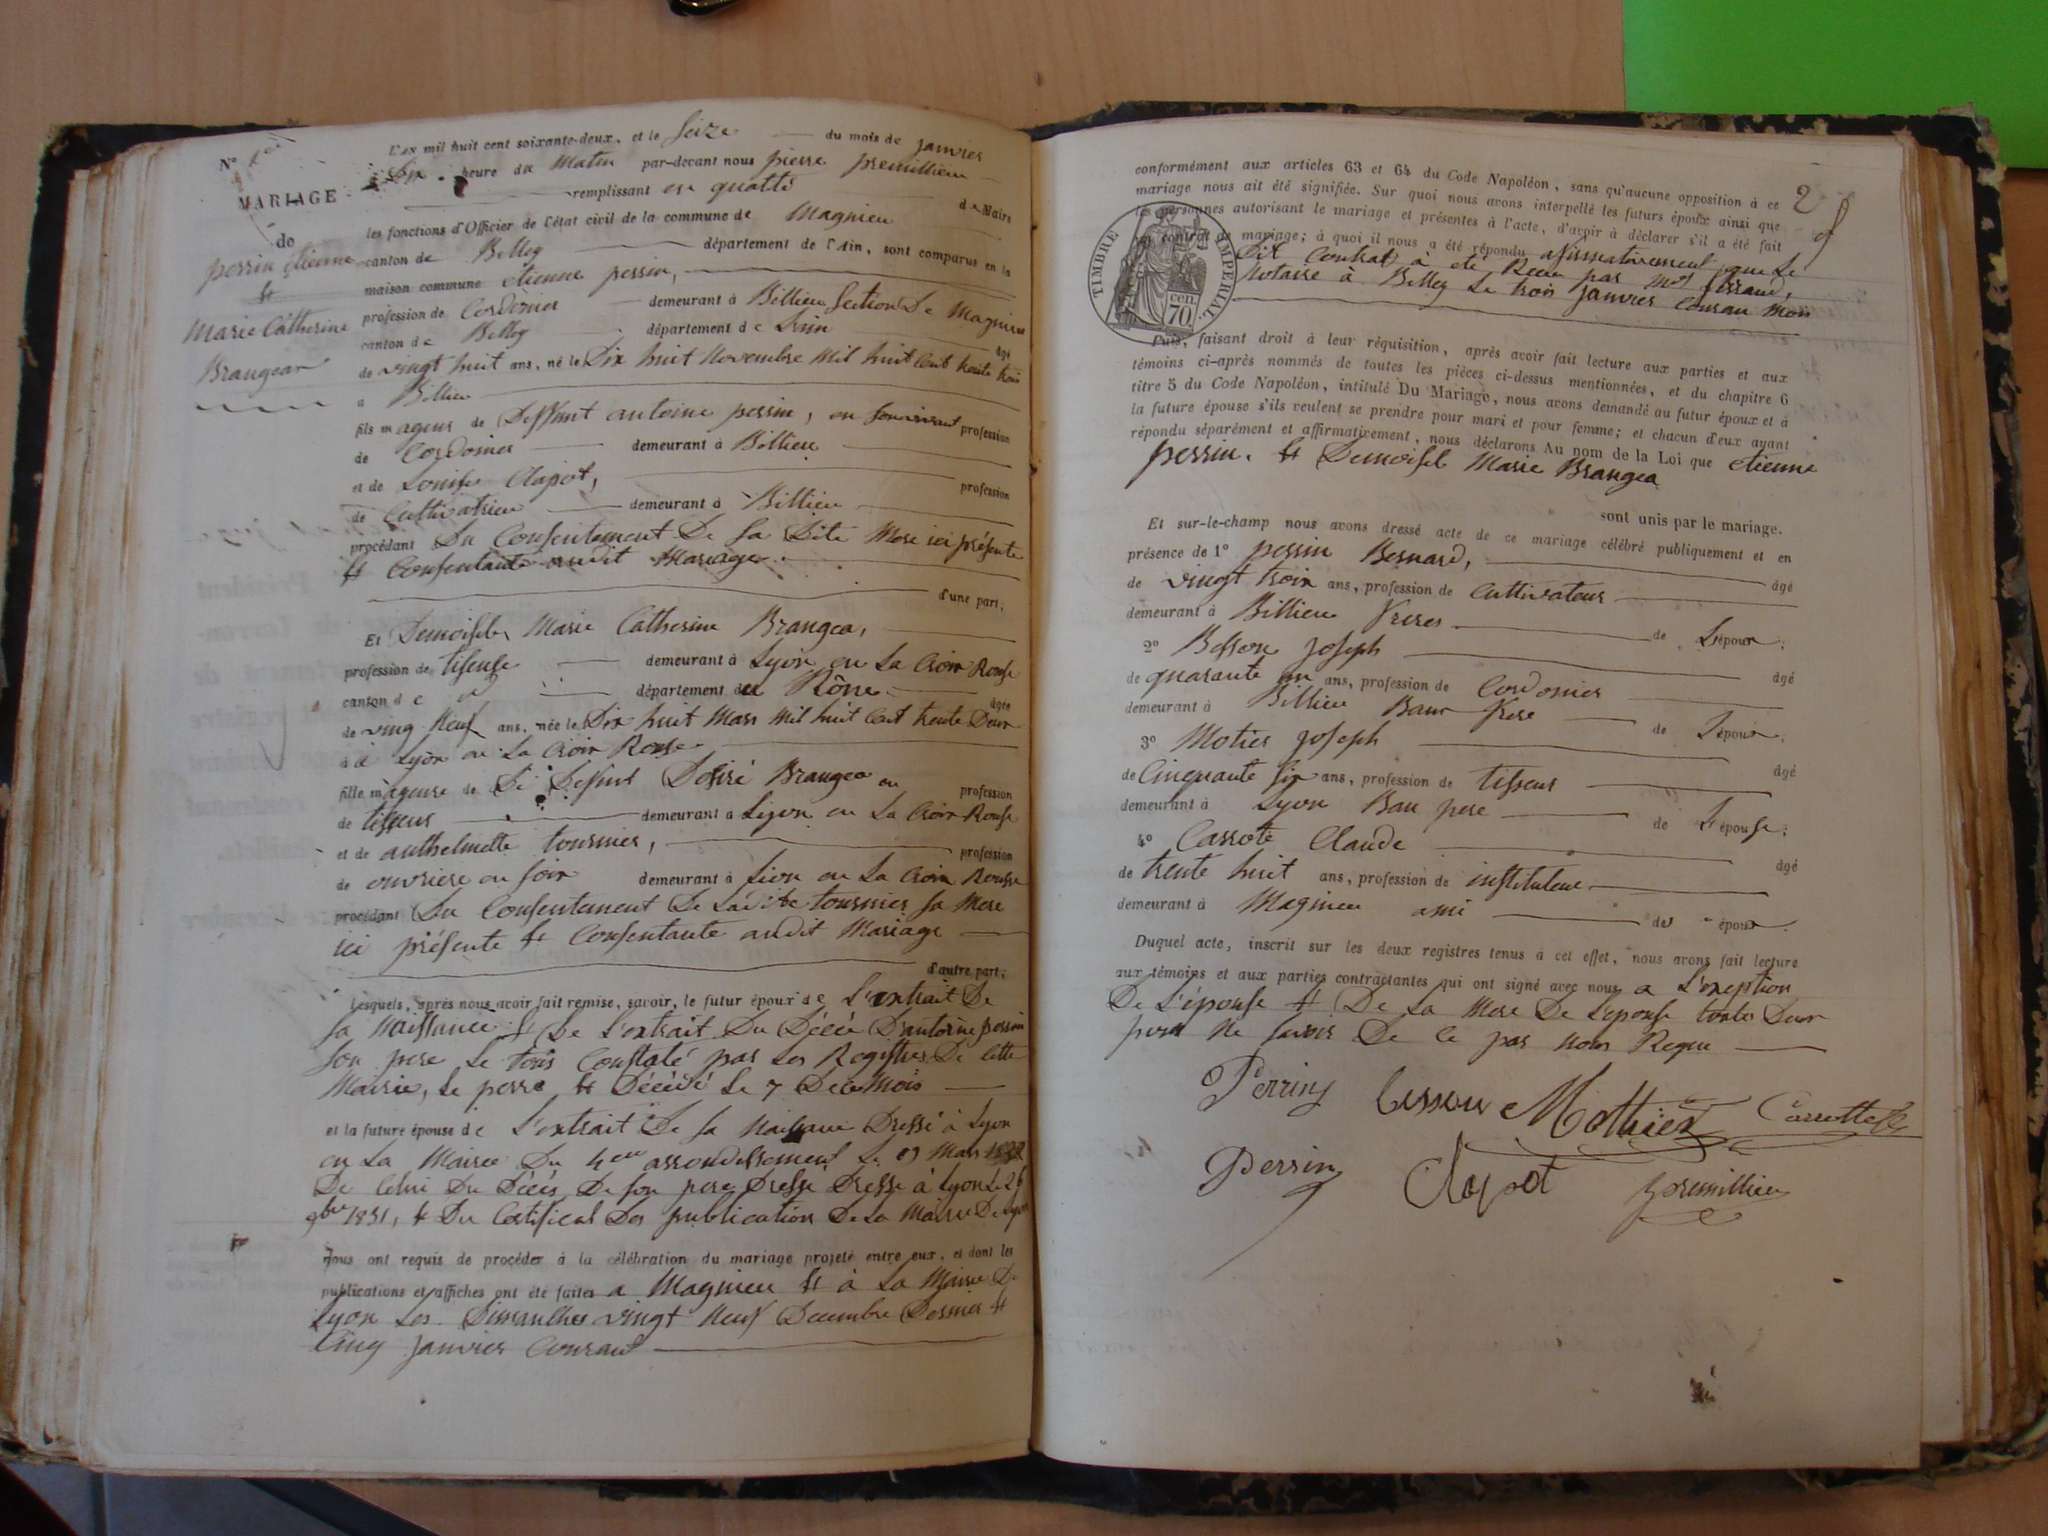 N°
MARIAGE
de
perrin étienne
et
Marie Catherine
Brangear
L'an mil huit cent soixante-deux, et le seize du mois de janvier
Dix heure du Matin par-devant nous pierre premillieu
remplissant en qualité de Maire
les fonctions d'Officier de l'état civil de la commune de Magnieu
canton de Belley département de l'Ain, sont comparus en la
maison commune étienne perrin,
profession de Cordonier demeurant à Billieu Section De Magnieu
canton de Belley département de Lain âgé
de vingt huit ans, né le Dix huit Novembre mil huit Cent trente trois
a Billieu
fils mageur de Deffunt antoine perrin, en Son vivant profession
de Cordonier demeurant à Billieu
et de Louise Clapot, profession
de Cultivatrice demeurant à Billieu
procédant Du Consentement De Sa Dite Mere ici présente
et Consentante audit Mariage
d'une part;
Et Demoiselle Marie Catherine Brangea,
profession de tiseuse demeurant à Lyon ou La Croix Rousse
canton de département du Rône âgée
de ving Neuf ans, née le Dix huit Mars mil huit Cent trente Deux
à Lyon ou La Croix Rousse
fille mageure de Defunt Desiré Brangea en profession
de tisseur demeurant a Lyon ou La Croix Rousse
et de anthelmette tournier, profession
de ouvriere en soix demeurant à Lion ou La Croix Rousse
procédant Du Consentement De Ladite tournier Sa Mere
ici présente et Consentante audit Mariage
d'autre part;
Lesquels, après nous avoir fait remise, savoir, le futur époux de L'extrait De
Sa Naissance et De L'extrait Du Décée D'antoine perrin
Son pere Le tous Constaté par Les Registres De Cette
Mairie, Le perre et Décédé Le 7 De ce Mois
et la future épouse de L'extrait De Sa Naissance Dressé à Lyon
ou La Mairee Du 4eme arrondissement Le 19 Mars 1832
De Celui Du Décés De Son pere Dressé à Lyon Le 26
9bre 1851, et Du Certificat Des publication De La Mairie De Lyon
Nous ont requis de procéder à la célébration du mariage projeté entre eux, et dont les
publications et affiches ont été faites a Magnieu et à La Mairie De
Lyon Les Dimanches vingt Neuf Decembre Dernier et
Cinq janvier Couraut
2
conformément aux articles 63 et 64 du Code Napoléon, sans qu'aucune opposition à ce
mariage nous ait été signifiée. Sur quoi nous avons interpellé les futurs époux ainsi que
les personnes autorisant le mariage et présentes à l'acte, d'avoir à déclarer s'il a été fait
un contrat de mariage; à quoi il nous a été répondu afirmativement que Le
Dit Contrat à été Recu par Me ferraud,
Notaire à Belley Le trois janvier Courau Mois
TIMBRE IMPERIAL
cen.
70
Puis, faisant droit à leur réquisition, après avoir fait lecture aux parties et aux
témoins ci-après nommés de toutes les pièces ci-dessus mentionnées, et du chapitre 6
titre 5 du Code Napoléon, intitulé Du Mariage, nous avons demandé au futur époux et à
la future épouse s'ils veulent se prendre pour mari et pour femme; et chacun d'eux ayant
répondu séparément et affirmativement, nous déclarons Au nom de la Loi que étienne
perrin. et Demoisel Marie Brangea
sont unis par le mariage.
Et sur-le-champ nous avons dressé acte de ce mariage célébré publiquement et en
présence de 1° perrin Bernard, âgé
de vingt troix ans, profession de Cultivateur
demeurant à Billieu Freres de L'époux;
2° Besson Joseph âgé
de quarante un ans, profession de Cordonier
demeurant à Billieu Baux Frere de L'époux;
3° Motier Joseph âgé
de Cinquante six ans, profession de tisseur
demeurant à Lyon Bau pere de L'épouse;
4° Carrote Claude âgé
de trente huit ans, profession de instituteur
demeurant à Magnieu ami des époux.
Duquel acte, inscrit sur les deux registres tenus à cet effet, nous avons fait lecture
aux témoins et aux parties contractantes qui ont signé avec nous a L'exeption
De L'épouse et De La Mere De L'epouse toutes Deux
pour Ne savoir De Ce par Nous Reque
Perrin Besson Mothier Carrotte
Perrin Clapot premillieu